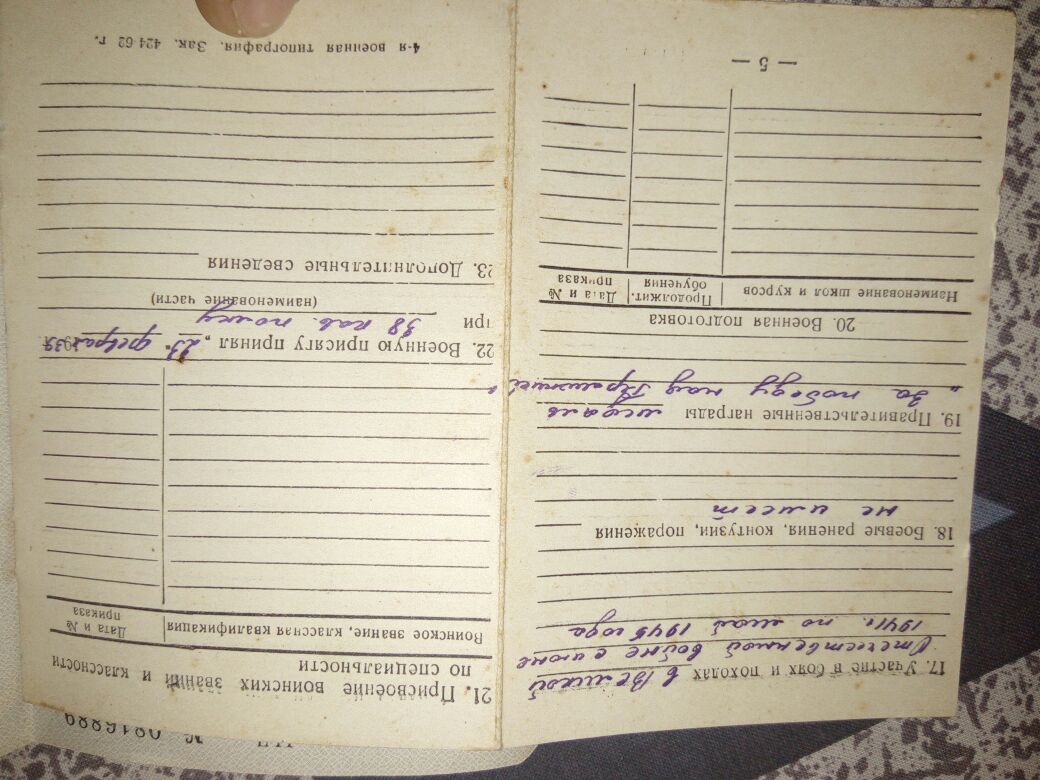 17. Участие в боях и походах в Великой
Отечественной войне с июня
1941г. по май 1945 года
18. Боевые ранения, контузии, поражения
не имеет
19. Правительственные награды медаль
„За победу над Германией"
20. Военная подготовка
Наименование школ и курсов
Продолжит. обучения
Дата и № приказа
— 5 —
21. Присвоение воинских званий и классности
по специальности
Воинское звание, классная квалификация
Дата и № приказа
22. Военную присягу принял „23" февраля 1939
при 38 кав. полку
(наименование части)
23. Дополнительные сведения
4-я военная типография. Зак. 424-62 г.